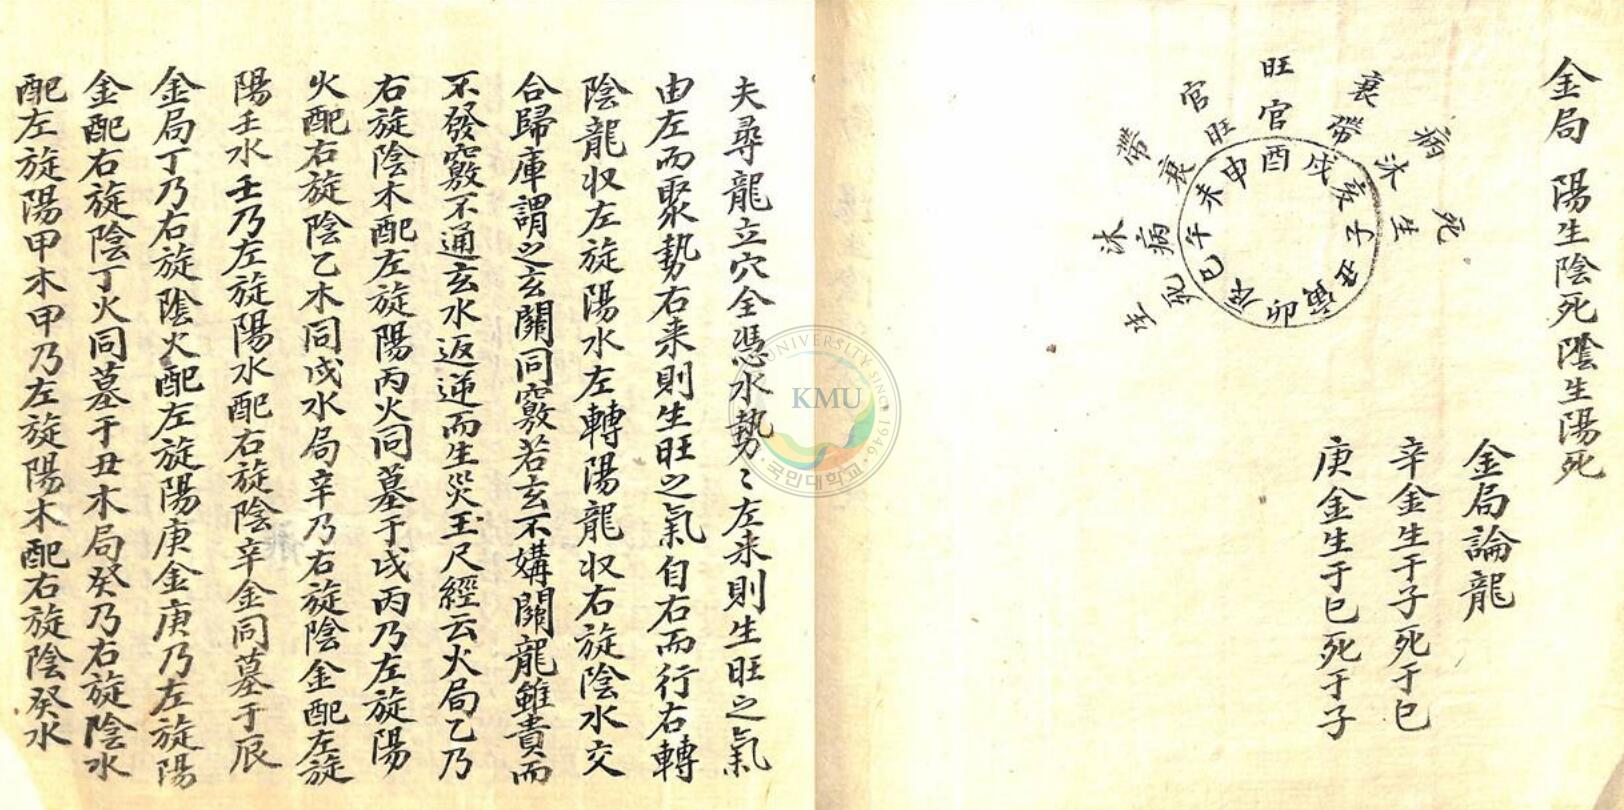 金局 陽生陰死陰生陽死
旺
官
衰
帶
病
沐
死
生
官
旺
帶
衰
沐
病
生
死
酉
戌
亥
子
丑
寅
卯
辰
巳
午
未
申
金局論龍
辛金生于子死于巳
庚金生于巳死于子
夫尋龍立穴全憑水勢〻左来則生旺之氣
由左而聚勢右来則生旺之氣自右而行右轉
陰龍収左旋陽水左轉陽龍収右旋陰水交
合歸庫謂之玄關同竅若玄不媾關龍雖貴而
不發竅不通玄水返逆而生災玉尺經云火局乙乃
右旋陰木配左旋陽丙火同墓于戌丙乃左旋陽
火配右旋陰乙木同戌水局辛乃右旋陰金配左旋
陽壬水壬乃左旋陽水配右旋陰辛金同墓于辰
金局丁乃右旋陰火配左旋陽庚金庚乃左旋陽
金配右旋陰丁火同墓于丑木局癸乃右旋陰水
配左旋陽甲木甲乃左旋陽木配右旋陰癸水
KMU
UNIVERSITY SINCE 1946
국민대학교